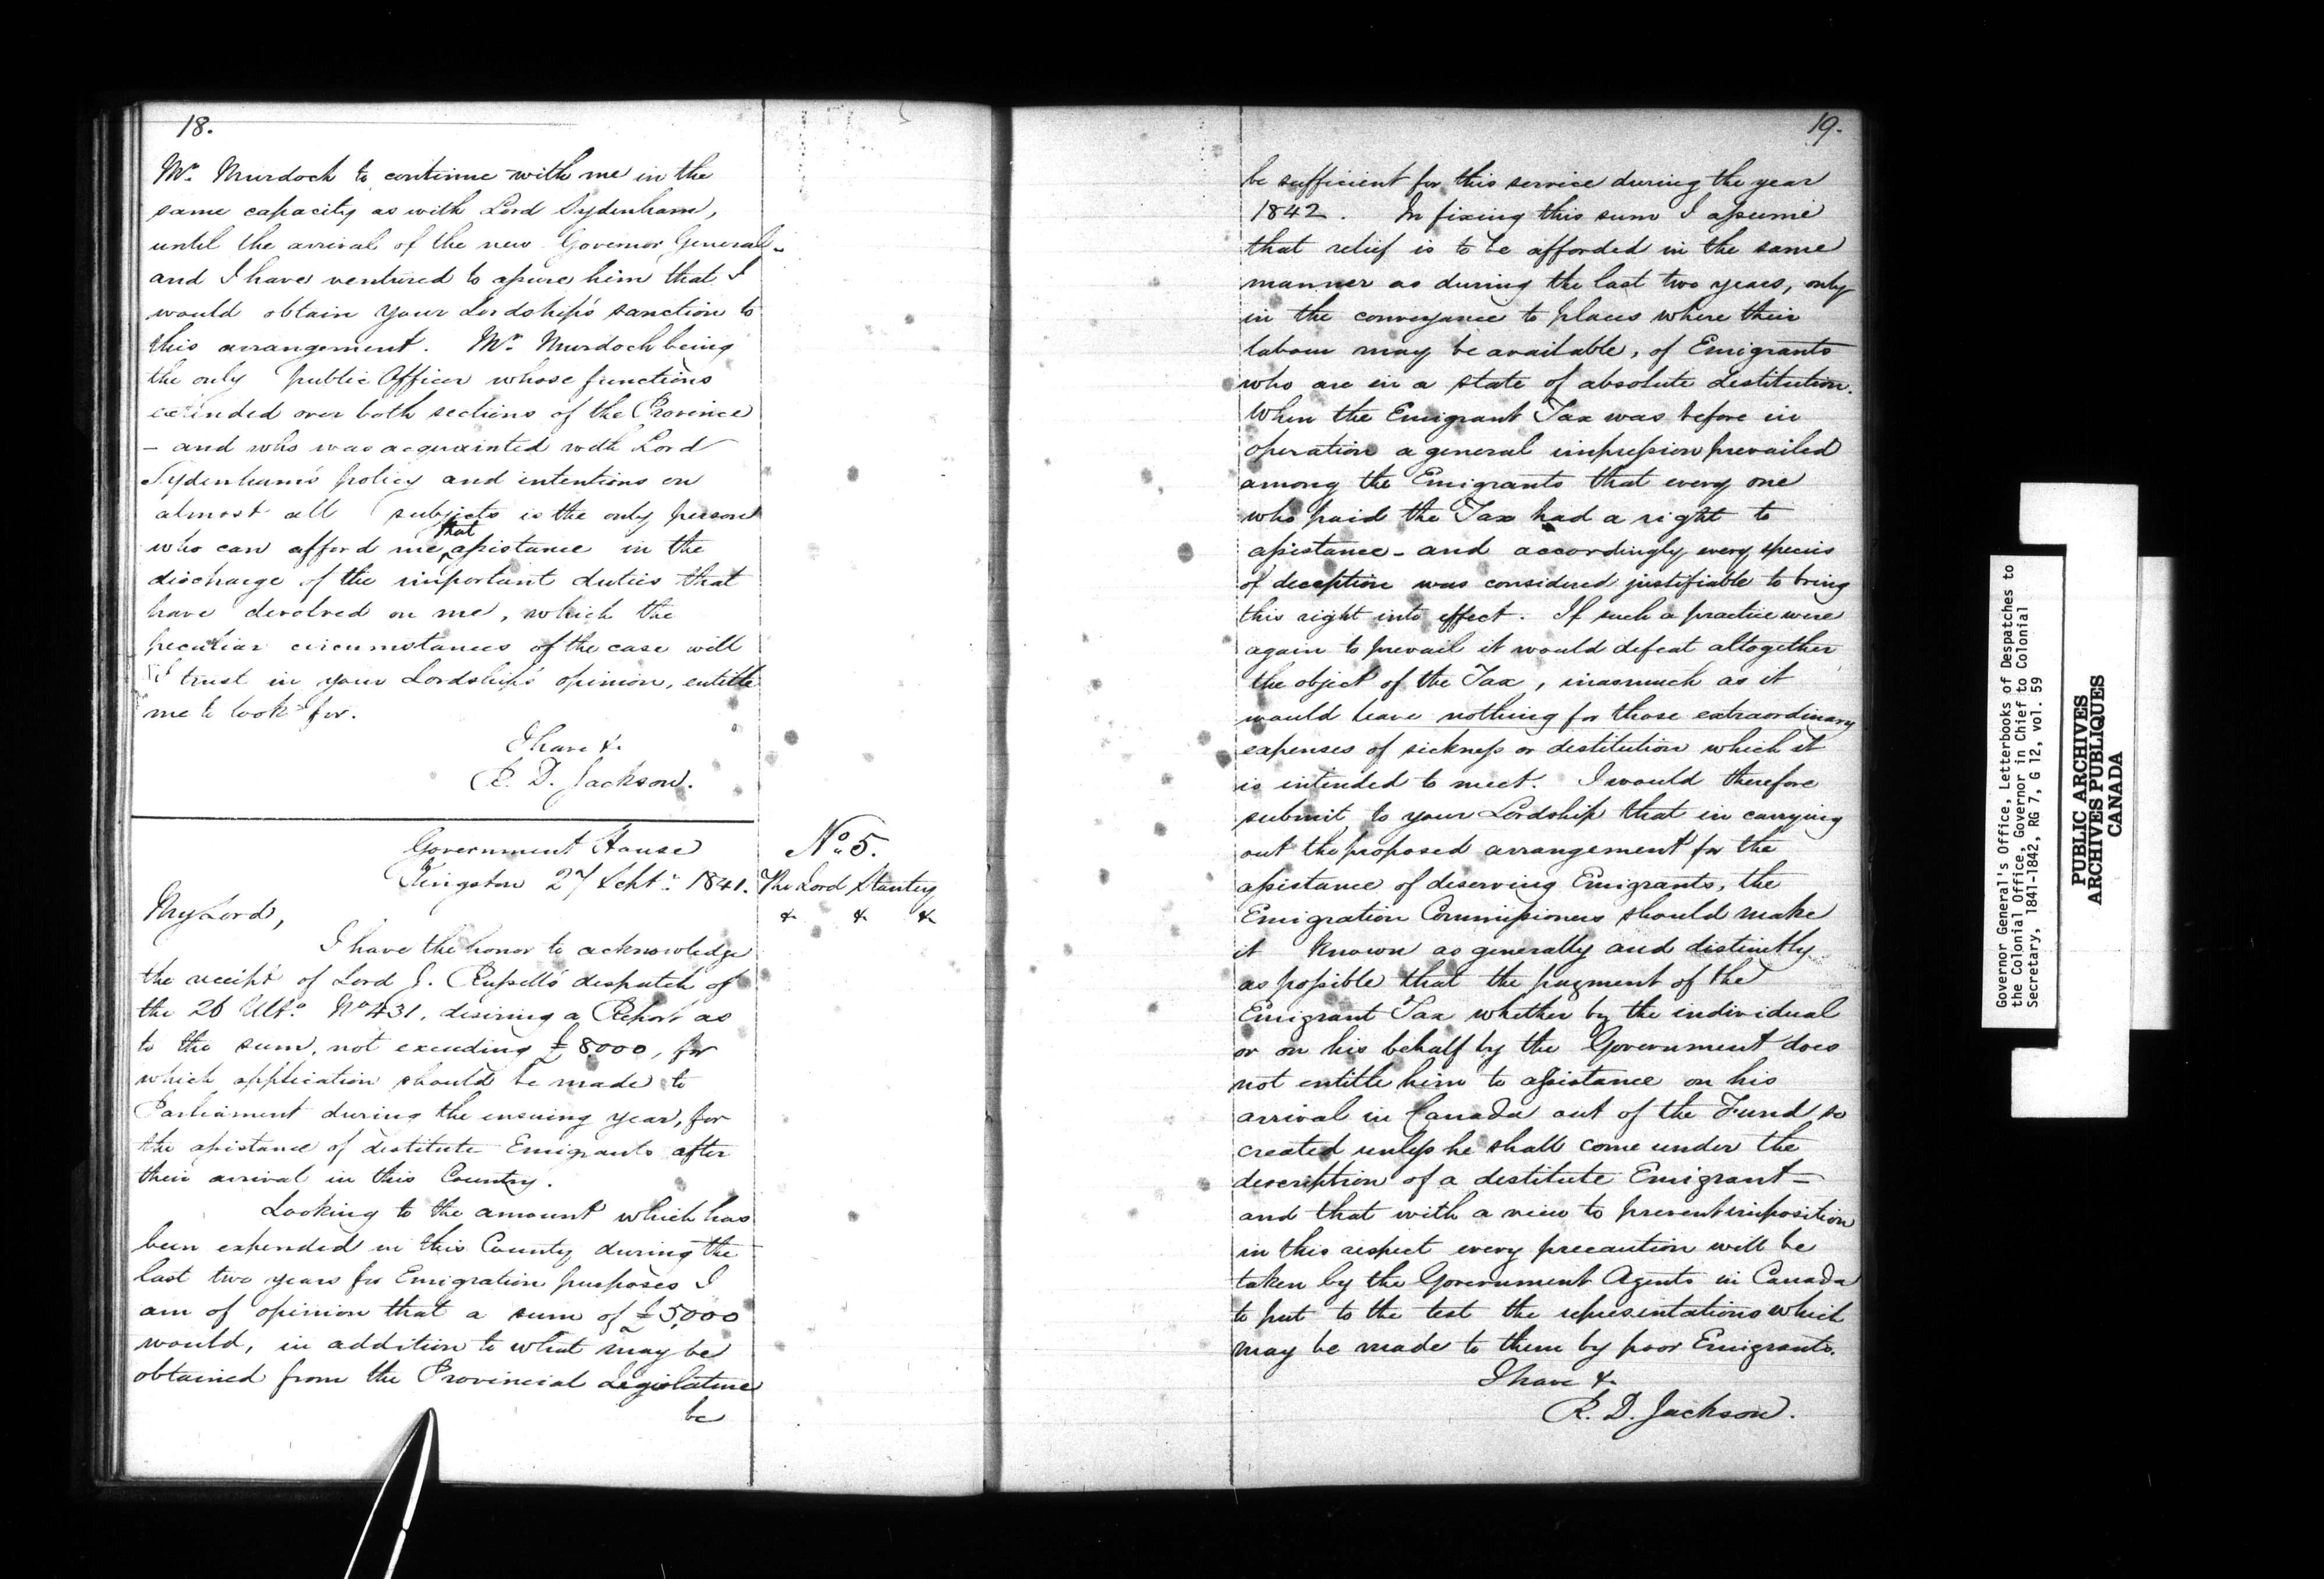 18.
Mr. Murdoch to continue with me in the
same capacity as with Lord Sydenham,
until the arrival of the new Governor General-
and I have ventured to assure him that I
would obtain your Lordship's sanction to
this arrangement. Mr. Murdoch being
the only public Officer whose functions
extended over both sections of the Province
- and who was acquainted with Lord
Sydenham's policy and intentions on
almost all subjects is the only person
who can afford me that assistance in the
discharge of the important duties that
have devolved on me, which the
peculiar circumstances of the case will
I trust in your Lordship's opinion, entitle
me to look for.
I have &
R. D. Jackson.
Government House
Kingston 27 Septr. 1841.
No. 5.
The Lord Stanley
& & &
My Lord,
I have the honor to acknowledge
the receipt of Lord J. Russell's despatch of
the 26 Ulto. No 431, desiring a Report as
to the sum, not exceeding £8000, for
which application should be made to
Parliament during the ensuing year, for
the assistance of destitute Emigrants after
their arrival in this Country.
Looking to the amount which has
been expended in this County during the
last two years for Emigration purposes I
am of opinion that a sum of £5,000
would, in addition to what may be
obtained from the Provincial Legislature
be
19.
be sufficient for this service during the year
1842. In fixing this sum I assume
that relief is to be afforded in the same
manner as during the last two years, only
in the conveyance to places where their
labour may be available, of Emigrants
who are in a state of absolute destitution.
When the Emigrant Tax was before in
operation a general impression prevailed
among the Emigrants that every one
who paid the Tax had a right to
assistance - and accordingly every species
of deception was considered justifiable to bring
this right into effect. If such a practice were
again to prevail it would defeat altogether
the object of the Tax, inasmuch as it
would leave nothing for those extraordinary
expenses of sickness or destitution which it
is intended to meet. I would therefore
submit to your Lordship that in carrying
out the proposed arrangement for the
assistance of deserving Emigrants, the
Emigration Commissioners should make
it known as generally and distinctly
as possible that the payment of the
Emigrant Tax whether by the individual
or on his behalf by the Government does
not entitle him to assistance on his
arrival in Canada out of the Fund so
created unless he shall come under the
description of a destitute Emigrant -
and that with a view to prevent imposition
in this respect every precaution will be
taken by the Government Agents in Canada
to put to the test the representations which
may be made to them by poor Emigrants.
I have &
R. D. Jackson.
Governor General's Office, Letterbooks of Despatches to
the Colonial Office, Governor in Chief to Colonial
Secretary, 1841-1842, RG 7, G 12, vol. 59
PUBLIC ARCHIVES
ARCHIVES PUBLIQUES
CANADA